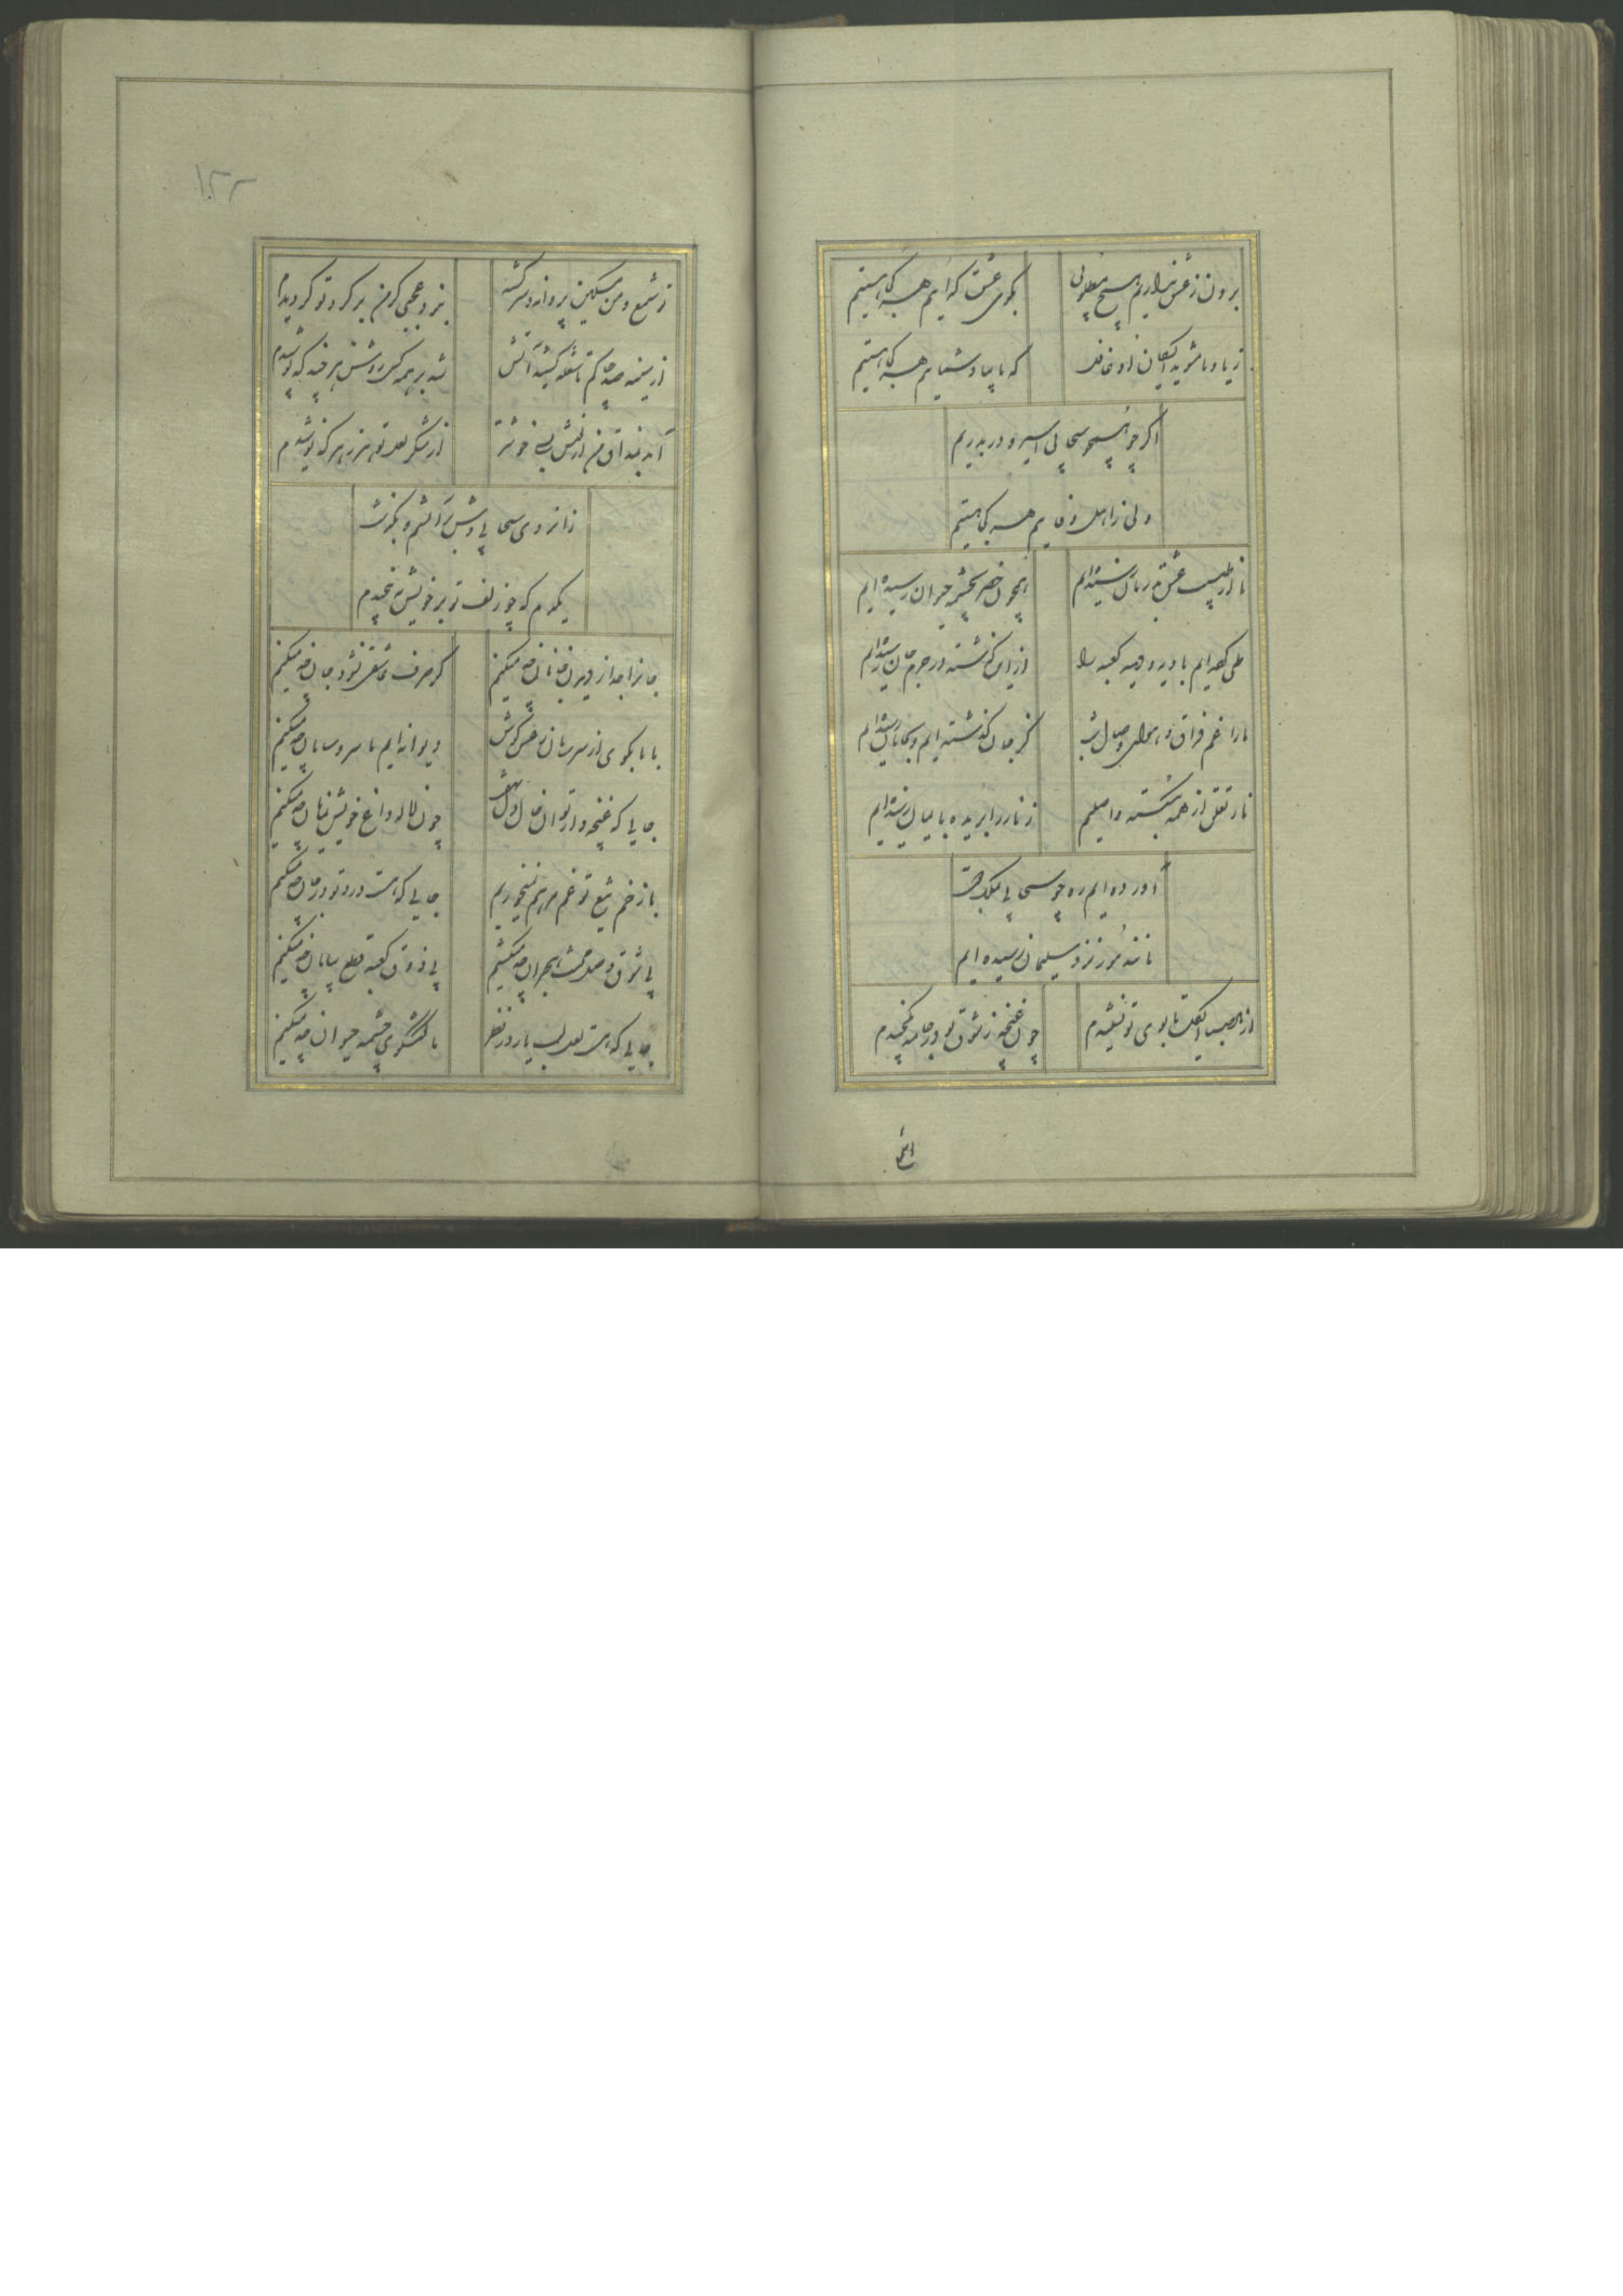 برون ز عشق نداریم هیچ مطلوبی بکوی عشق کدایم هر کجا هستیم
ز یاد ما مشوید ای کسان غافل که با یاد شمایم هر کجا هستیم
اگر چو سحابی اسیر و در بدریم
ولی ز اهل وفایم هر کجا هستیم
تا از طبیب عشق بدرمان رسیده‌ایم همچون خضر بچشمه حیوان رسیده ایم
طی کرده‌ایم بادیه کعبه را از این گذشته در حرم جان رسیده‌ایم
ما را غم فراق و هوای وصال کز جان گذشته ایم و بجانان رسیده‌ایم
تا تعلق از همه بگسسته واصلیم زنار را بریده با یمان رسیده‌ایم
آورده ایم ره چو سحابی بملک
مانند مور نزد سلیمان رسیده ایم
از تا بوی تو نشنیدم چون غنچه ز شوق تو در جامه نکنجیدم
ز شمع و من مسکین پروانه سرگشته نبود عجبی کر من بر کرد تو کردیدم
از سینه صد چاکم تا شعله کشید آتش شد بر همه کس روشن هر چند که پوشیدم
آمد بمذاق من از نیش بسی خوشتر از شکر لعل تو هر زهر که نوشیدم
زانروی سحابی وش بگرفت
یکدم که چو زلف تو بر خویش نه پیچیدم
جانرا جدا از دیدن جانان چه میکنیم کر صرف عاشقی نشود جان چه میکنیم
با ما مگوی از سر سامان دیوانه ایم ما سر و سامان چه میکنیم
جایی که غنچه وار توان دل چون لاله داغ خویش نمایان چه میکنیم
با زخم تیغ تو غم مرهم نمیخوریم جایی که هست درد تو درمان چه میکنیم
بی شوق وصل محنت هجران چه میکشیم بی ذوق کعبه قطع بیابان چه میکنیم
جایی که هست لعل لب یار در نظر ما گفتگوی چشمه حیوان چه میکنیم